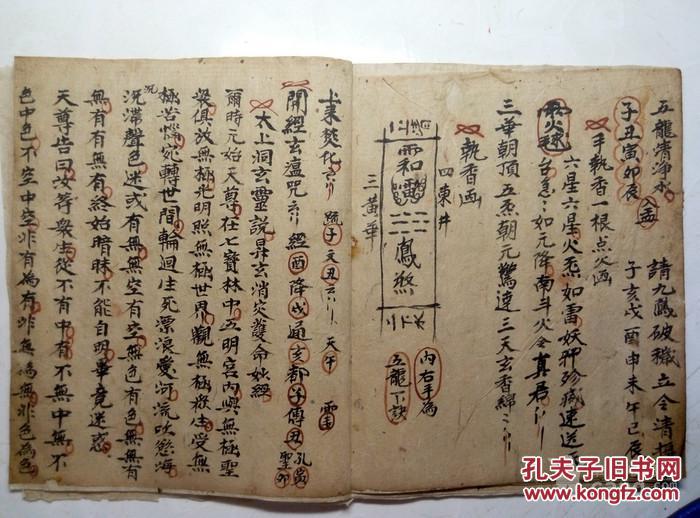 五龍清淨水 請九鳳破穢立令清
子丑寅卯辰 子亥戌酉申未午巳辰
手執香一根点火画
六星六星火炁如雷妖邪殄滅速送
台急如元降南斗火令真君
三華朝頂五炁朝元驚達三天玄香綿
執香画
四東井
鳳煞
三黄華
内右手為
五龍丁訣
上來焚化 疏子文丑 天午 雷
開經玄瘟咒 經酉降戌通亥都子傳丑孔寅聖卯
太上洞玄靈說昇玄消灾護命妙經
爾時元始天尊在七寶林中五明宮内與無極聖
衆俱放無極光明照無極世界觀無極衆生受無
極苦惱宛轉世間輪迴生死漂浪愛河流吹慾海
沉滯聲色迷惑有無無空有空無色有色無無有
無有有無有終始暗昧不能自明畢竟迷惑
天尊告曰汝等衆生從不有中有不無中無不
色中色不空中空非有為有非無為無非色為色
孔夫子旧书网
www.kongfz.com